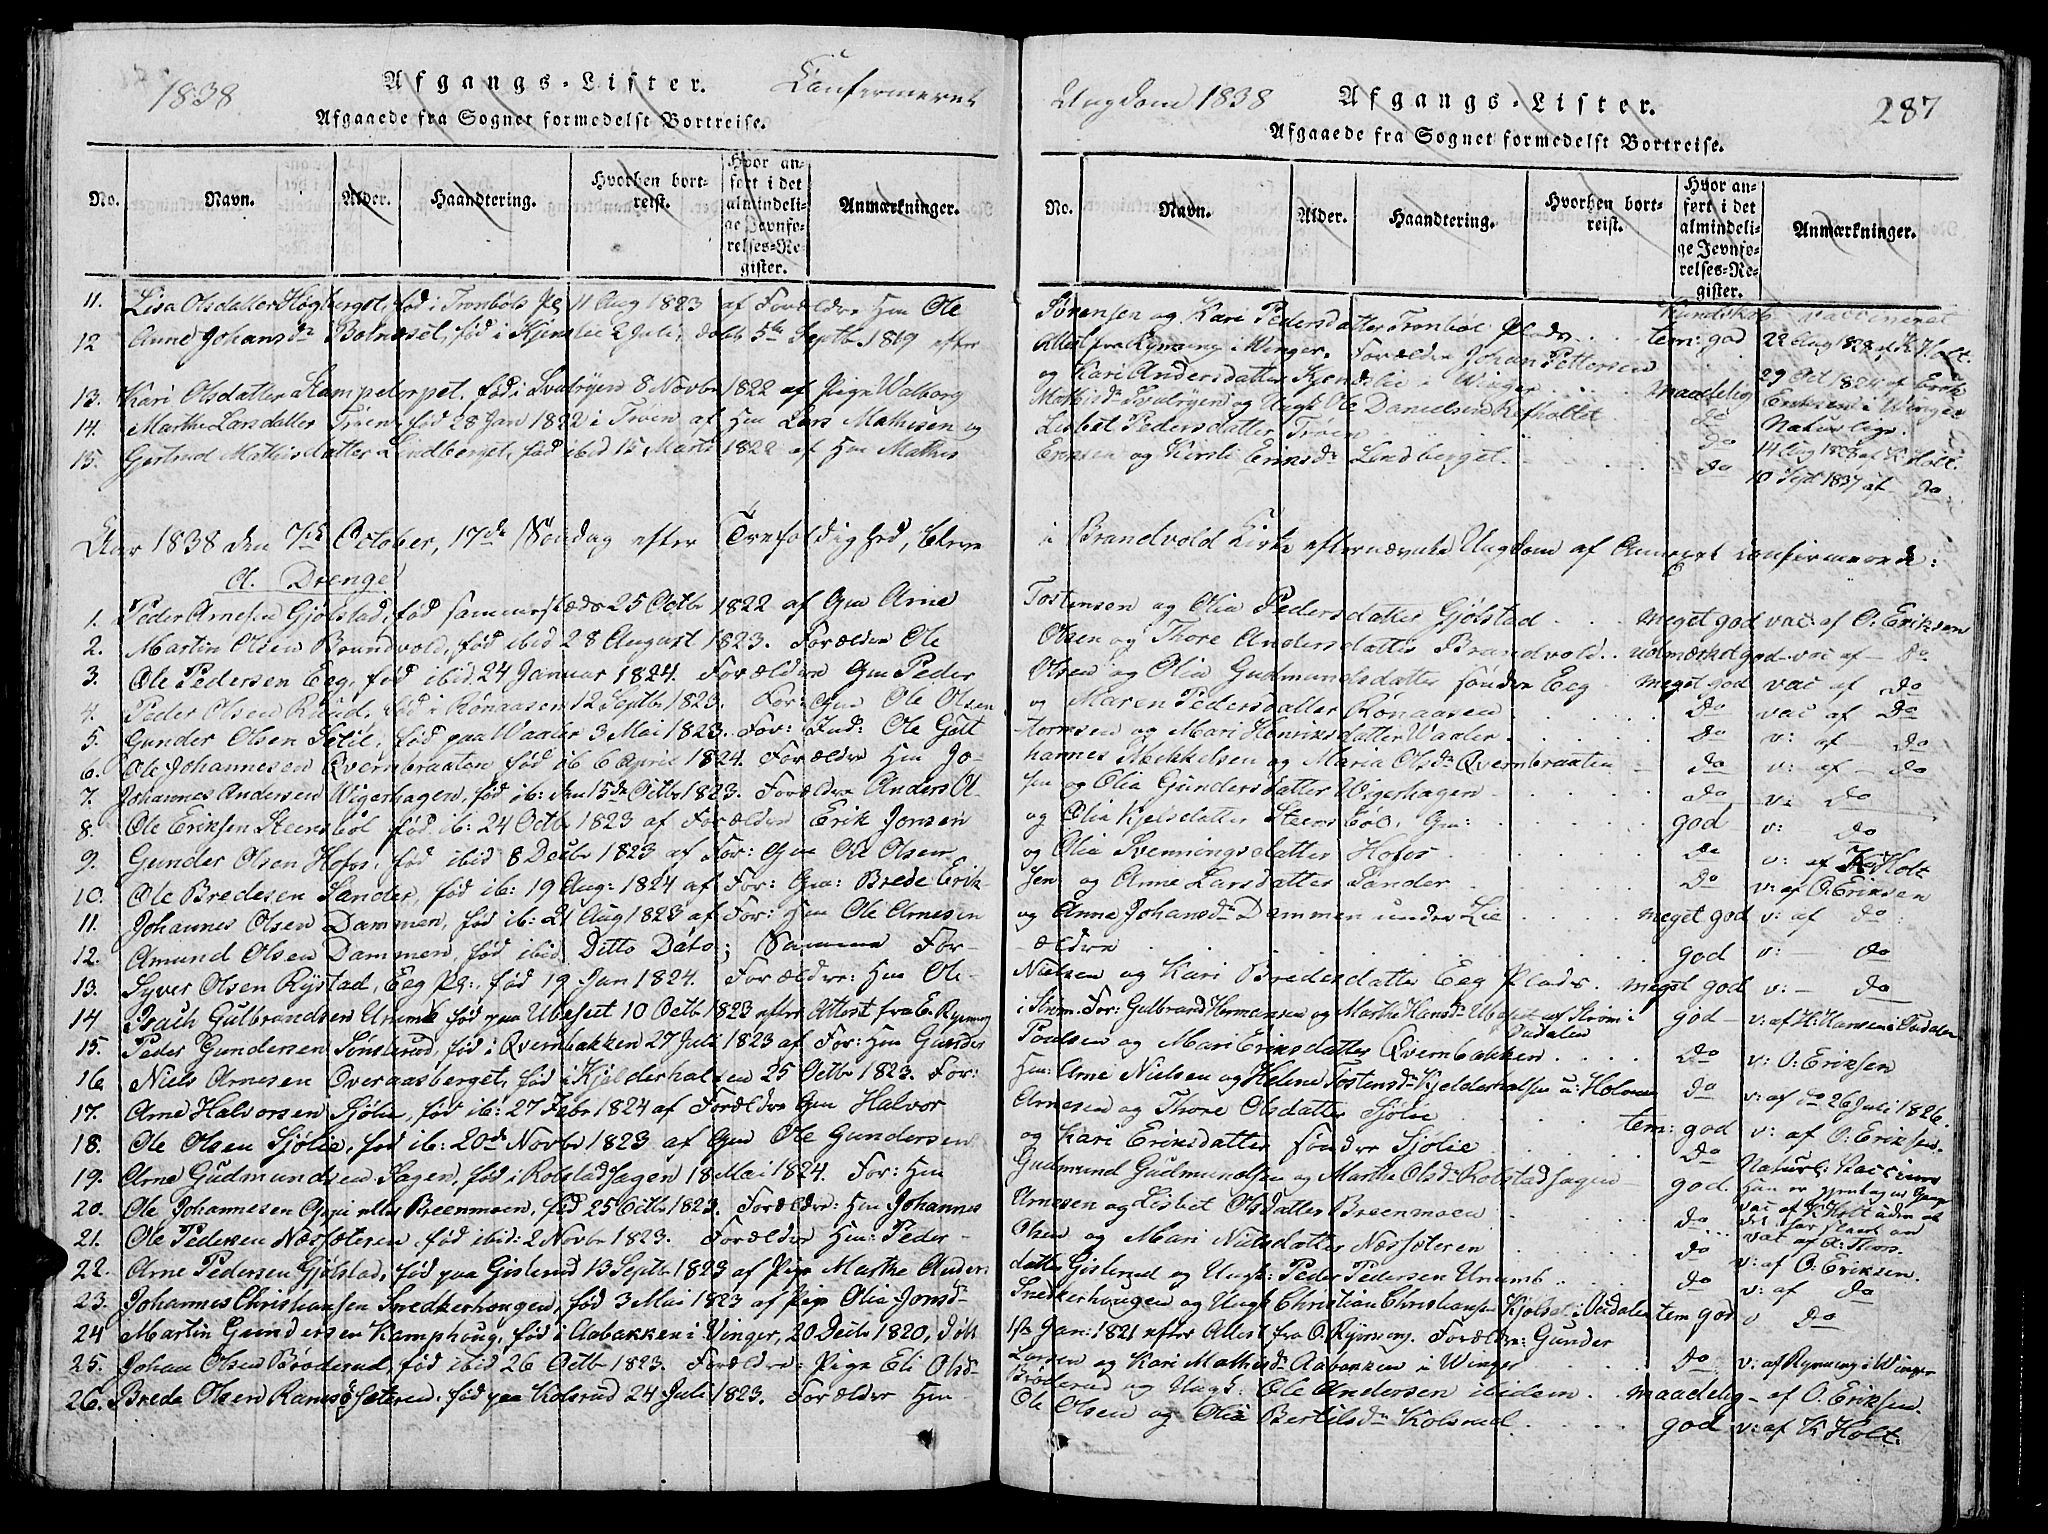 1838 Afgangs-Lister. Confermeret
Afgaaede fra Sognet formedelst Bortreise.
No. Navn. Alder. Haandtering. Hvorhen bortreist. Hvor anført i det almindelige Jevnførelses-Register. Anmærkninger.
11. Lisa Olsdatter Høgberget, fød i Tronbøls Pl 11 Aug 1823 af Forældre Hm Ole
12 Anne Johansdr Botnesel, fød i Kjenslie 2 Juli, døbt 5te Septbr 1819 efter
13. Kari Olsdatter Stampetorpet, fød i Svalryen 8 Novbr 1822 af Pige Walborg
14. Marthe Larsdatter Tjøen, fød 28 Jan 1822 i Troen af Hm Lars Mathisen og
15. Gertrud Mathisdatter Lindberget, fød ibid 15 Marts 1822 af Hm Mathis
Aar 1838 den 7de October, 17de Søndag efter Trefoldighed, bleve
A. Drenge
1. Peder Arnesen Gjølstad, fød sammesteds 25 Octbr 1822 af Gm Arne
2. Martin Olsen Brandvold, fød ibid 28 August 1823. Forældre Ole
3. Ole Pedersen Eeg, fød ibid 24 Januar 1824. Forældre Gm Peder
4. Peder Olsen Ruud, fød i Rønaasen 12 Septbr 1823. For: Gm Ole Olsen
5. Gunder Olsen fød paa Waaler 3 Mai 1823. For: Ind: Ole Gut
6. Ole Johannesen Qvernbraaten fød ib 6 April 1824. Forældre Hm Jo-
7. Johannes Andersen Wigerhagen, fød ib: den 15de Octbr 1823. Forældre Anders O-
8. Ole Eriksen Steensbøl fød ib: 24 Octbr 1823 af Forældre Erik Jonsen
9. Gunder Olsen Hofos, fød ibid 8 Decbr 1823 af For: Gm Ole Olsen
10. Ole Bredesen Sander, fød ib: 19 Aug: 1824 af For: Gm: Brede Erik-
11. Johannes Olsen Dammen, fød ib: 21 Aug 1823 af For: Hm Ole Arnesen
12. Amund Olsen Dammen, fød ibid Ditto Dato; Samme For-
13. Syver Olsen Rystad, Eeg Pl:, fød 19 Jan 1824. Forældre: Hm Ole
14 Gulbrandsen Unumb fød paa Ubeset 10 Octbr 1823 efter Attest fra E. Rynning
15. Peder Gundersen Sønsterud, fød i Qvernbakken 27 Juli 1823 af For: Hm Gunder
16. Niels Arnesen Overaasberget, fød i Kjelderhalsen 25 Octbr 1823. For:
17. Arne Halvorsen Sjølie, fød ib: 27 Febr 1824 af Forældre Gm Halvor
18. Ole Olsen Sjølie, fød ib: 20de Novbr 1823 af Gm Ole Gundersen
19. Arne Gudmundsen Sagen, fød i Rolstadsagen 18 Mai 1824. For: Hm
20. Ole Johannesen Oppi eller Breenmoen, fød 25 Octbr 1823. Forældre: Hm Johannes
21. Ole Pedersen Næssæteren, fød ibid: 2 Novbr 1823. Forældre Hm: Peder
22. Arne Pedersen Gjølstad, fød paa Gislerud 13 Septbr 1823 af Pige Marthe Anders
23. Johannes Christiansen Snedkerhougen, fød 3 Mai 1823 af Pige Olia Jonsdr
24 Martin Gundersen Kamphoug, fød i Aabakken i Vinger, 20 Decbr 1820, døbt
25. Johan Olsen Brøderud, fød ibid 26 Octbr 1823. Forældre: Pige Eli Olsdr
26. Brede Olsen Ramsøsæteren, fød paa Kolsrud 24 Juli 1823. Forældre Hm
Ungdom 1838 Afgangs-Lister. 287
Afgaaede fra Sognet formedelst Bortreise.
No. Navn. Alder. Haandtering. Hvorhen bortreist. Hvor anført i det almindelige Jevnførelses-Register. Anmærkninger.
Kundskab Vaccineret
Sørensen og Kari Pedersdatter Tronbøl Plads . . tem: god 22 Aug 1828 af K. Holt.
Attest fra Rynning i Winger. Forældre Johan Pettersen
og Kari Andersdatter Kjendslie i Winger . . maadelig 29 Oct 1824 af Erik Eriksen i Winger
Mathisdr Svalryen og Ungk Ole Danielsen Refholtet . . do Naturlige.
Lisbet Pedersdatter Troen . . do 14 Aug 1828 af K. Holt.
Eriksen og Kirsti Eriksdr Lindberget . . do 10 Sept 1837 af do
i Brandvold Kirke efternævnte Ungdom af Annexet confirmerede:
Tostensen og Olia Pedersdatter Gjølstad . . . meget god vac: af O. Eriksen
Olsen og Thore Andersdatter Brandvold . . udmærket god vac af Do
Olsen og Olia Gudmundsdatter søndre Eeg . meget god vac af Do
og Maren Pedersdatter Rønaasen . . . Do vac af Do
tormsen og Mari Henriksdatter Waaler . . . Do v: af do
hannes Mikkelsen og Maria Olsdr Qvernbraaten — do v: af do
sen og Olia Gundersdatter Wigerhagen . . . do v: Do
og Olia Kjelsdatter Steensbøl, Gm: . . . god v: do
og Olia Svenningsdatter Hofos . . . do v: af K Holt
sen og Anne Larsdatter Sander . . . do v: af O: Eriksen
og Anne Johansdr Dammen under Lie . . . meget god v: af do
ældre . . . god v: — do
Nielsen og Kari Bredesdatter Eeg Plads . meget god v: — do
i Strøm. For: Gulbrand Hermansen og Marthe Hansdr Ubeset af Strøm i Oudalen god — v: af H: Hansen i Oudalen
Poulsen og Mari Eriksdatter Qvernbakken . . . do v: O: Eriksen
Hm: Arne Nielsen og Helene Tostensdr Kjelderhalsen u: Holmen do v: af do 26 Juli 1826.
Arnesen og Thore Olsdatter Sjølie . . . tem: god v: af O: Eriksen.
og Kari Eriksdatter søndre Sjølie . . . do
Gudmund Gudmundsen og Marthe Olsdr Rolstadsagen — god.
Arnesen og Lisbet Olsdatter Breenmoen . . . do
Olsen og Mari Nielsdatter Næssæteren . . . do v: af O: Eriksen.
datter Gislerud og Ungk: Peder Pedersen Unumb . . . do v: af do
Snedkerhougen og Ungk Christian Christiansen Kjølset i Oudalen tem god v do
1ste Jan: 1821 efter Attest fra O. Rynning. Forældre: Gunder
Larsen og Kari Mathisdr Aabakken i Winger . . . do v: af Rynning i Winger
Brøderud og Ungk: Ole Andersen ibidem . . maadelig — af O. Eriksen.
Ole Olsen og Olia Bertilsdr Kolsrud . . . god v: af K Holt.